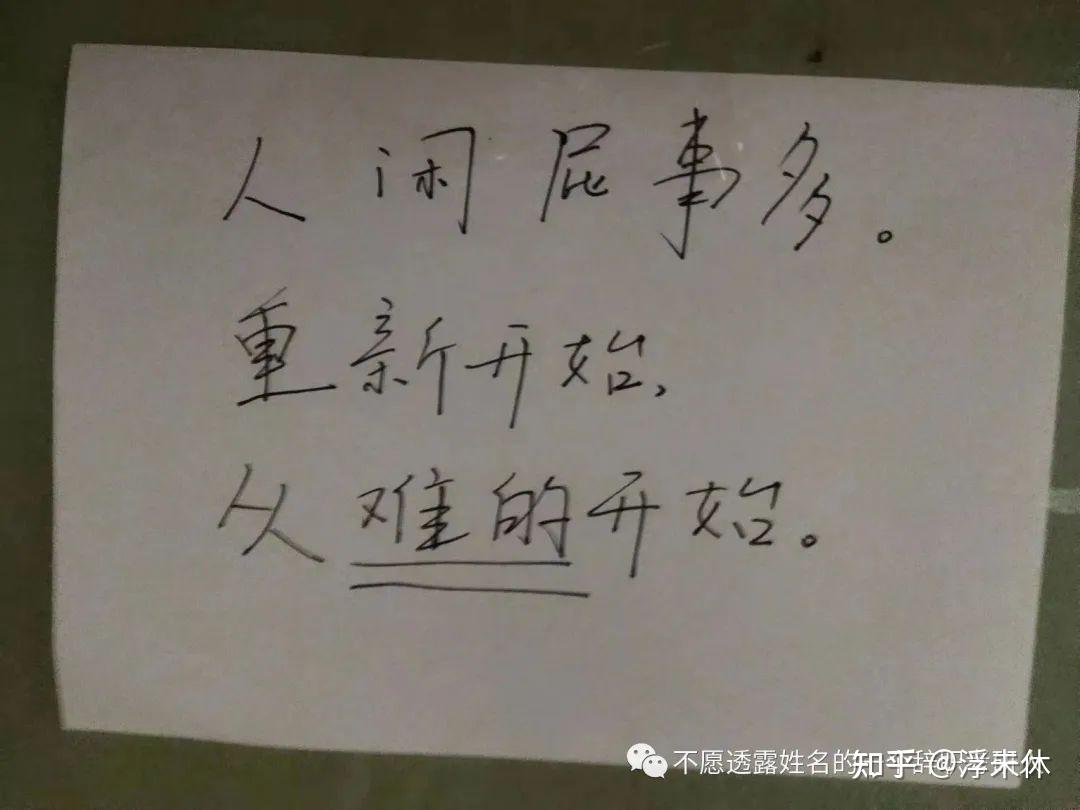 人闲屁事多。
重新开始,
从难的开始。
不愿透露姓名的
知乎 @浮来休